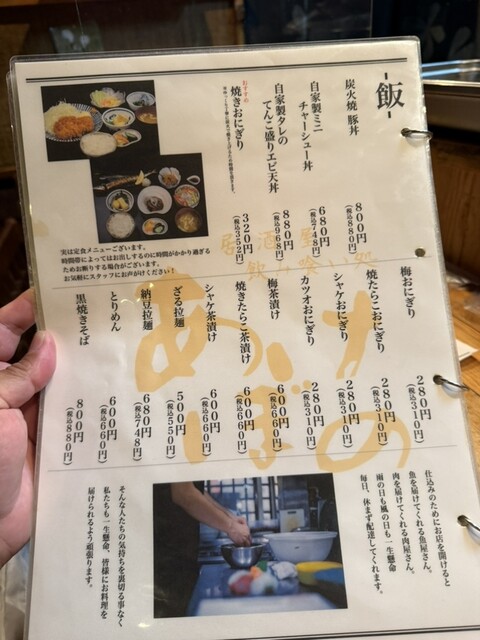 飯
炭火焼 豚丼
800円
(税込880円)
自家製ミニ
チャーシュー丼
680円
(税込748円)
自家製タレの
てんこ盛りエビ天丼
880円
(税込968円)
おすすめ
焼きおにぎり
320円
(税込352円)
実は定食メニューございます。
時間帯によってはお出しするのに時間がかかり過ぎる
ためお断りする場合がございます。
お気軽にスタッフにお声がけください!
居酒屋
飲み喰い処
あけぼの
梅おにぎり
280円
(税込310円)
焼たらこおにぎり
280円
(税込310円)
シャケおにぎり
280円
(税込310円)
カツオおにぎり
280円
(税込310円)
梅茶漬け
600円
(税込660円)
焼きたらこ茶漬け
600円
(税込660円)
シャケ茶漬け
600円
(税込660円)
ざる拉麺
500円
(税込550円)
納豆拉麺
680円
(税込748円)
とりめん
600円
(税込660円)
黒焼きそば
800円
(税込880円)
仕込みのためにお店を開けると
魚を届けてくれる魚屋さん。
肉を届けてくれる肉屋さん。
雨の日も風の日も一生懸命
毎日、休まず配達してくれます。
そんな人たちの気持ちを裏切る事なく
私たちも一生懸命、皆様にお料理を
届けられるよう頑張ります。